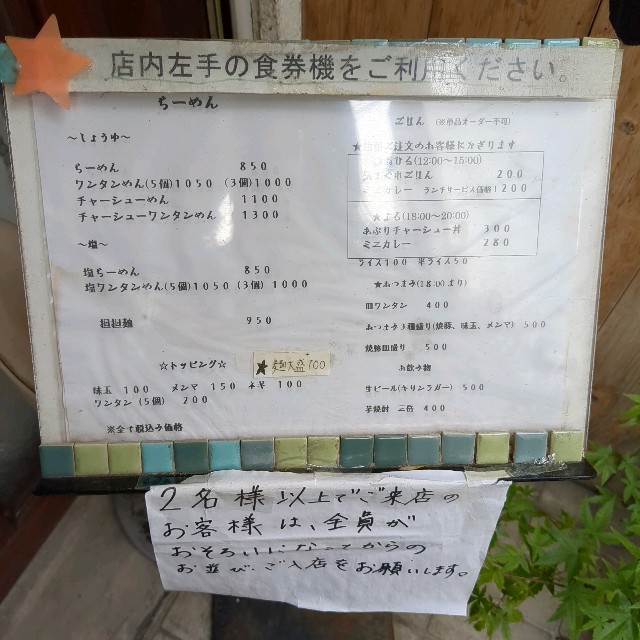 店内左手の食券機をご利用ください。
らーめん
～しょうゆ～
らーめん 850
ワンタンめん(5個)1050 (3個)1000
チャーシューめん 1100
チャーシューワンタンめん 1300
～塩～
塩らーめん 850
塩ワンタンめん(5個)1050 (3個)1000
担担麺 950
☆トッピング☆
★麺大盛100
味玉 100 メンマ 150 ネギ 100
ワンタン(5個) 200
※全て税込み価格
ごはん (※単品オーダー不可)
ご注文のお客様にかぎります
ひる(12:00～15:00)
ごはん 200
ミニカレー ランチサービス価格!200
★よる(18:00～20:00)
あぶりチャーシュー丼 300
ミニカレー 280
ライス100 半ライス50
★おつまみ(18:00より)
皿ワンタン 400
おつまみ3種盛り(焼豚、味玉、メンマ) 500
焼豚皿盛り 500
お飲み物
生ビール(キリンラガー) 500
芋焼酎 三岳 400
2名様以上でご来店の
お客様は、全員が
おそろいになってからの
お並び、ご入店をお願いします。